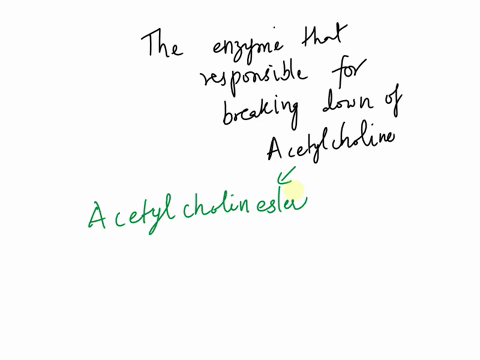 The enzyme that
responsible for
breaking down of
Acetylcholine
Acetylcholinester